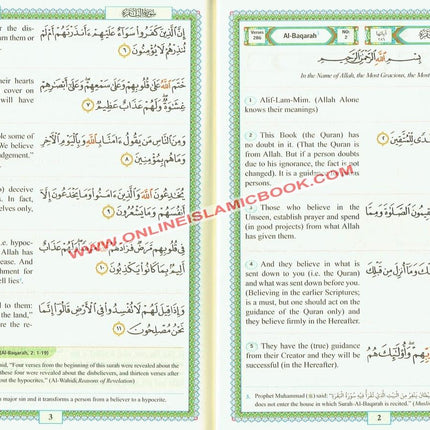 Verses
286
Al-Baqarah
NO:
2
بِسْمِ اللَّهِ الرَّحْمَنِ الرَّحِيمِ
In the Name of Allah, the Most Gracious, the Most
1 Alif-Lam-Mim. (Allah Alone
knows their meanings)
2 This Book (the Quran) has
no doubt in it. (That the Quran is
from Allah. But if a person doubts
due to his ignorance, the fact is not
changed). It is a guidance
persons.
هُدًى لِّلْمُتَّقِينَ
3 Those who believe in the
Unseen, establish prayer and spend
(in good projects) from what Allah
has given them.
وَيُقِيمُونَ الصَّلَاةَ وَمِمَّا
4 And they believe in what is
sent down to you (i.e. the Quran)
and what was sent down before you.
(Believing in the earlier Scriptures;
is a must, but one should act on the
guidance of the Quran only) and
they believe firmly in the Hereafter.
وَمَا أُنزِلَ مِن قَبْلِكَ
5 They have the (true) guidance
from their Creator and they will be
successful (in the Hereafter).
وَأُولَٰئِكَ هُمُ
3. Prophet Muhammad (ﷺ) said:
does not enter the house in which Surah-Al-Baqarah is recited." (Muslim
2
سُورَةُ الْبَقَرَةِ
إِنَّ الَّذِينَ كَفَرُوا سَوَاءٌ عَلَيْهِمْ ءَأَنذَرْتَهُمْ أَمْ لَمْ
تُنذِرْهُمْ لَا يُؤْمِنُونَ ٦
خَتَمَ اللَّهُ عَلَىٰ قُلُوبِهِمْ وَعَلَىٰ سَمْعِهِمْ وَعَلَىٰ أَبْصَارِهِمْ
غِشَاوَةٌ وَلَهُمْ عَذَابٌ عَظِيمٌ ٧
وَمِنَ النَّاسِ مَن يَقُولُ ءَامَنَّا بِاللَّهِ وَبِالْيَوْمِ الْآخِرِ
وَمَا هُم بِمُؤْمِنِينَ ٨
يُخَادِعُونَ اللَّهَ وَالَّذِينَ ءَامَنُوا وَمَا يَخْدَعُونَ إِلَّا
أَنفُسَهُمْ وَمَا يَشْعُرُونَ ٩
فِي قُلُوبِهِم مَّرَضٌ فَزَادَهُمُ اللَّهُ مَرَضًا وَلَهُمْ عَذَابٌ
أَلِيمٌ بِمَا كَانُوا يَكْذِبُونَ ١٠
وَإِذَا قِيلَ لَهُمْ لَا تُفْسِدُوا فِي الْأَرْضِ قَالُوا إِنَّمَا
نَحْنُ مُصْلِحُونَ ١١
the dis-
um them or
heir hearts
cover on
will have
ple some of
We believe
udgement."
) deceive
s. In fact,
selves only,
hypoc-
Allah has
ease. And
shment for
ell lies).
d to them:
the land,"
re the re-
(Al-Baqarah, 2: 1-19)
said, "Four verses from the beginning of this surah were revealed about the
these four revealed about the disbelievers, and thirteen verses after
out the hypocrites." (Al-Wahidi, Reasons of Revelation)
major sin and it transforms a person from a believer to a hypocrite.
3
WWW.ONLINEISLAMICBOOK.COM